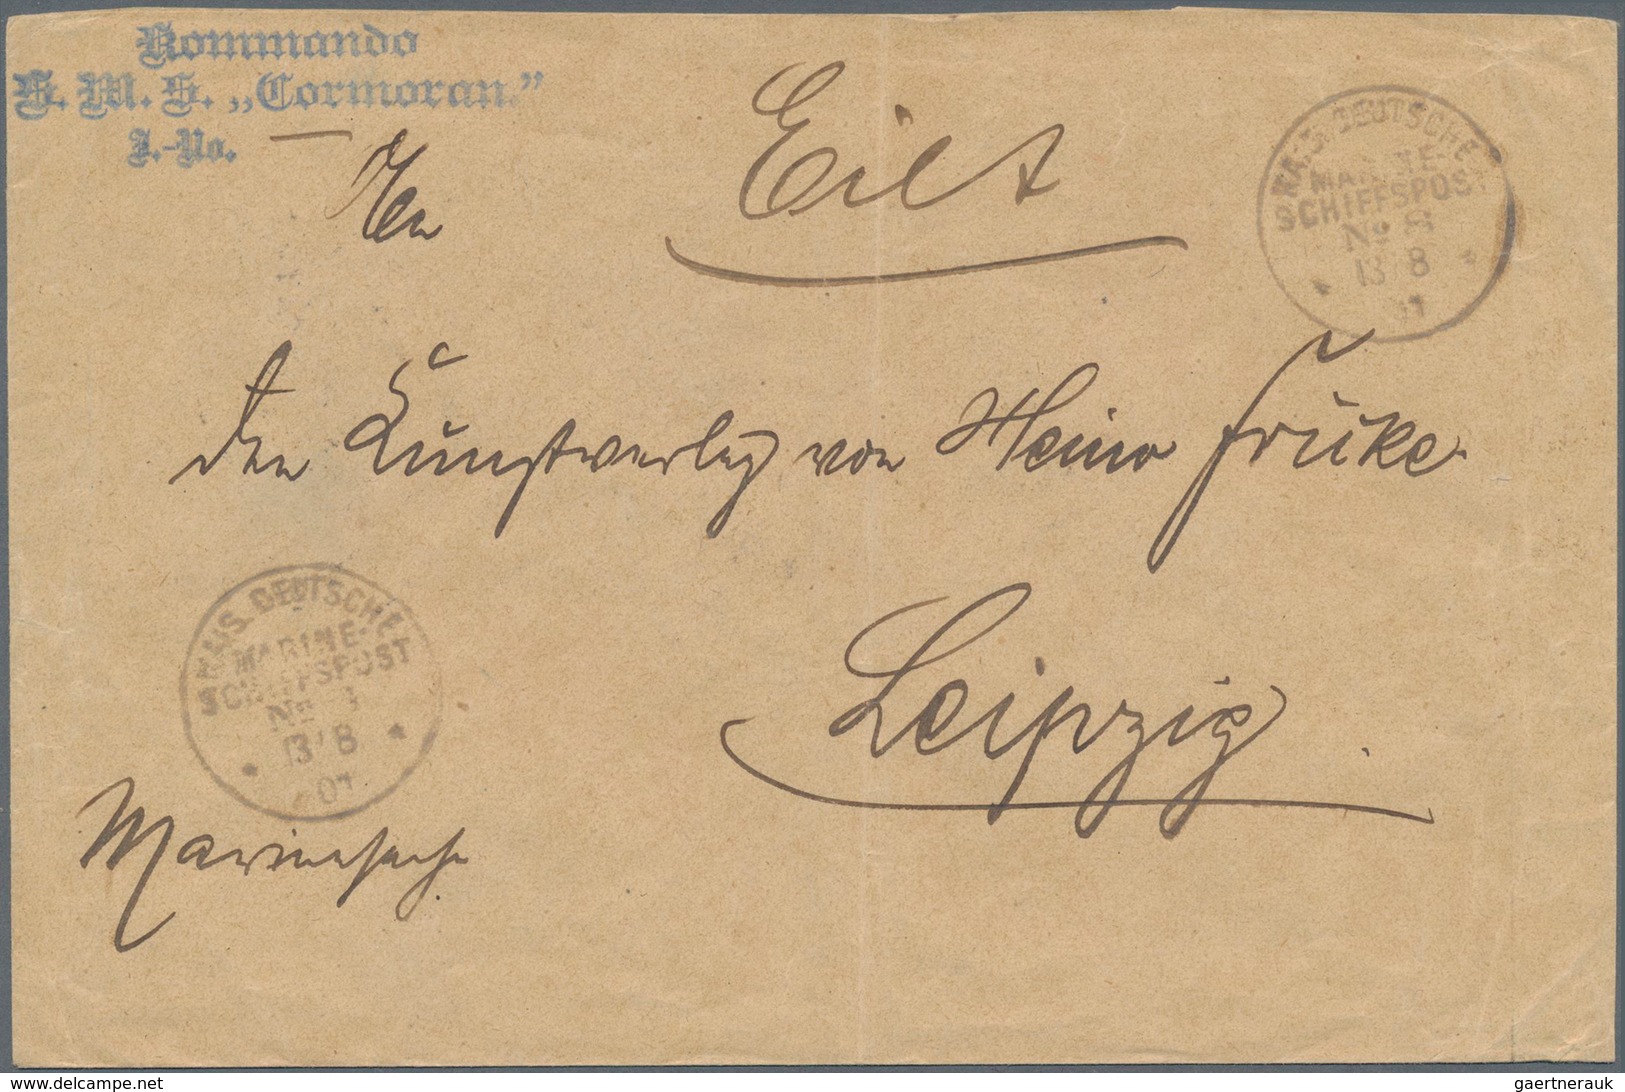 Kommando
S. M. S. „Cormoran."
J.-No. —
An
Eilt
KAIS. DEUTSCHE
MARINE-
SCHIFFSPOST
No 8
13/8
01
den Kunstverlag von Heino Fricke
KAIS. DEUTSCHE
MARINE-
SCHIFFSPOST
No
13/8
01
Leipzig.
Marinesache.
www.delcampe.net
gaertnerauk